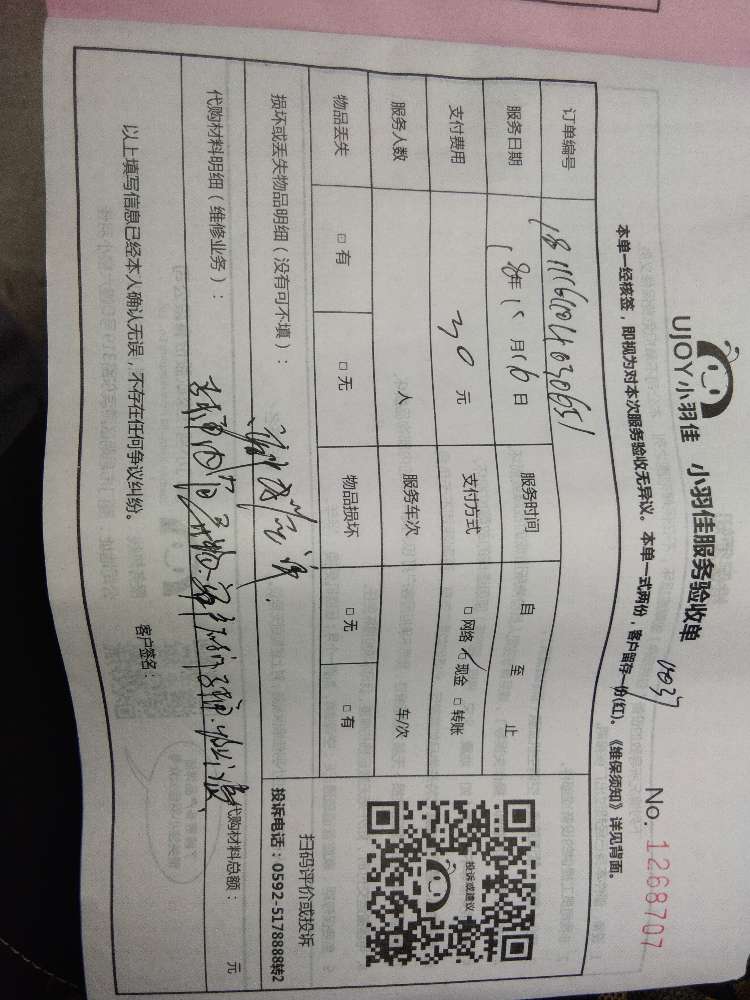 UJOY小羽佳 小羽佳服务验收单
No. 1268707
本单一经核签，即视为对本次服务验收无异议。本单一式两份，客户留存一份(红)。《维保须知》详见背面。
订单编号
服务日期 18年 月16日 服务时间 自 至 止
支付费用 30元 支付方式 □网络 ☑现金 □转账
服务人数 人 服务车次 车/次
物品丢失 □有 □无 物品损坏 □无 □有
损坏或丢失物品明细（没有可不填）：
代购材料明细（维修业务）：
代购材料总额： 元
投诉或建议
扫码评价或投诉
投诉电话：0592-5178888转2
以上填写信息已经本人确认无误，不存在任何争议纠纷。 客户签名：